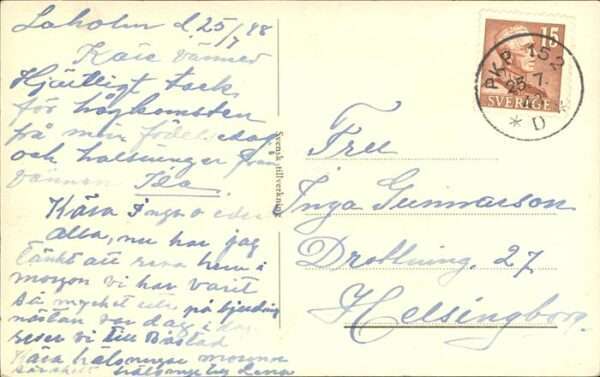 Laholm d. 25/7 48
Kära vänner
Hjärtligt tack
för hågkomsten
på min födelsedag
och hälsningar från
vännen Ida
Kära Inga o eder
alla, nu har jag
tänkt att resa hem i
morgon vi har varit
så mycket ute på bjudning
nästan var dag, i dag
reser vi till Båstad
Kära hälsningar
Svensk tillverkning
15
SVERIGE
PKP 153
25.7.
* D *
Fru
Inga Gunnarson
Drottning. 27
Helsingborg.